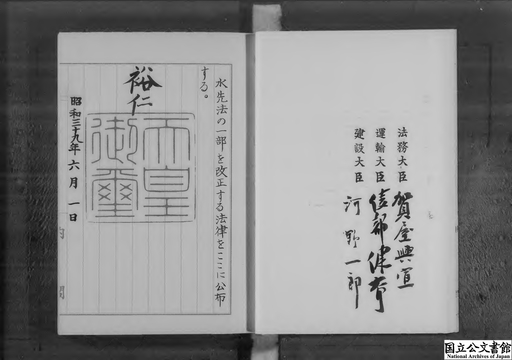 法務大臣 賀屋興宣
運輸大臣 綾部健太郎
建設大臣 河野一郎
水先法の一部を改正する法律をここに公布
する。
裕仁
天皇
御璽
昭和三十九年六月一日
国立公文書館
National Archives of Japan